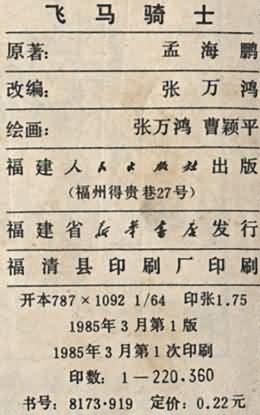 飞马骑士
原著: 孟海鹏
改编: 张万鸿
绘画: 张万鸿 曹颖平
福建人民出版社出版
(福州得贵巷27号)
福建省新华书店发行
福清县印刷厂印刷
开本787×1092 1/64 印张1.75
1985年3月第1版
1985年3月第1次印刷
印数: 1—220,360
书号: 8173·919 定价: 0.22元